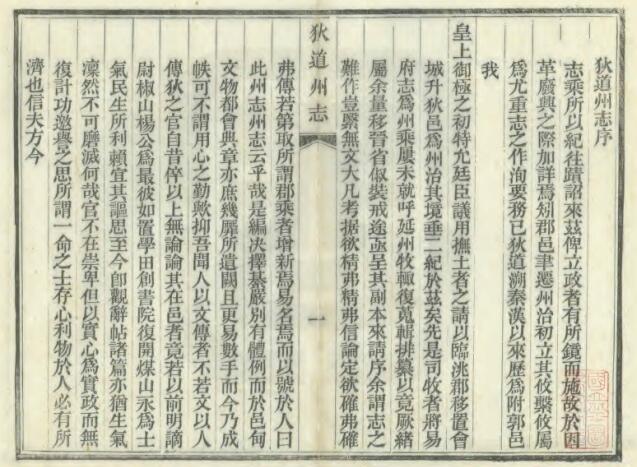 狄道州志序
志乘所以紀往蹟詔來茲俾立政者有所鏡而施故於因
革廢興之際加詳焉矧郡邑聿遷州治初立其攸繫攸屬
爲尤重志之作洵要務已狄道溯秦漢以來歷爲附郭邑
我
皇上御極之初特允廷臣議用撫土者之請以臨洮郡移置會
城升狄邑爲州治其境垂二紀於茲矣先是司牧者將易
府志爲州乘屢未就呼延州牧輙復蒐輯排纂以竟厥緒
屬余量移晉省俶裝戒途亟呈其副本來請序余謂志之
難作豈繄無文大凡考据欲精弗精弗信論定欲確弗確
狄道州志
一
弗傳若第取所謂郡乘者增新焉易名焉而以號於人曰
此州志州志云乎哉是編决擇綦嚴别有體例而於邑甸
文物都會典章亦庶幾靡所遺闕且更易數手而今乃成
帙可不謂用心之勤歟抑吾聞人以文傳者不若文以人
傳狄之官自昔倅以上無論論其在邑者竟若以前明謫
尉椒山楊公爲最彼如置學田創書院復開煤山永爲士
氣民生所利賴宜其謳思至今卽觀辭帖諸篇亦猶生氣
凜然不可磨滅何哉官不在崇卑但以實心爲實政而無
復計功邀譽之思所謂一命之士存心利物於人必有所
濟也信夫方今